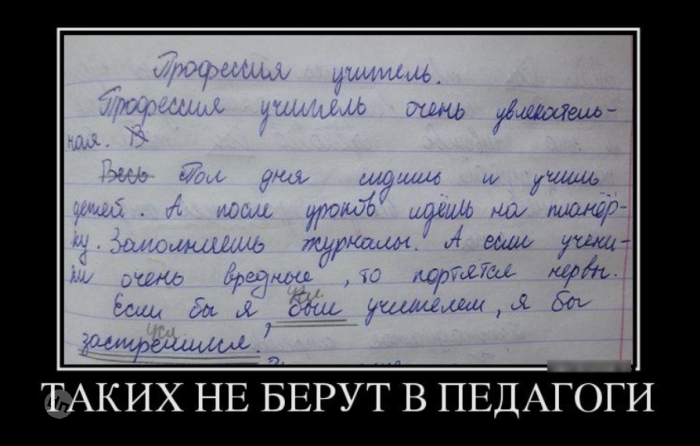 Профессия учитель.
Профессия учитель очень увлекатель-
ная. В
Весь Пол дня сидишь и учишь
детей. А после уроков идёшь на планёр-
ку. Заполняешь журналы. А если учени-
ки очень вредные, то портятся нервы.
Если бы я был учителем, я бы
застрелился.
ТАКИХ НЕ БЕРУТ В ПЕДАГОГИ